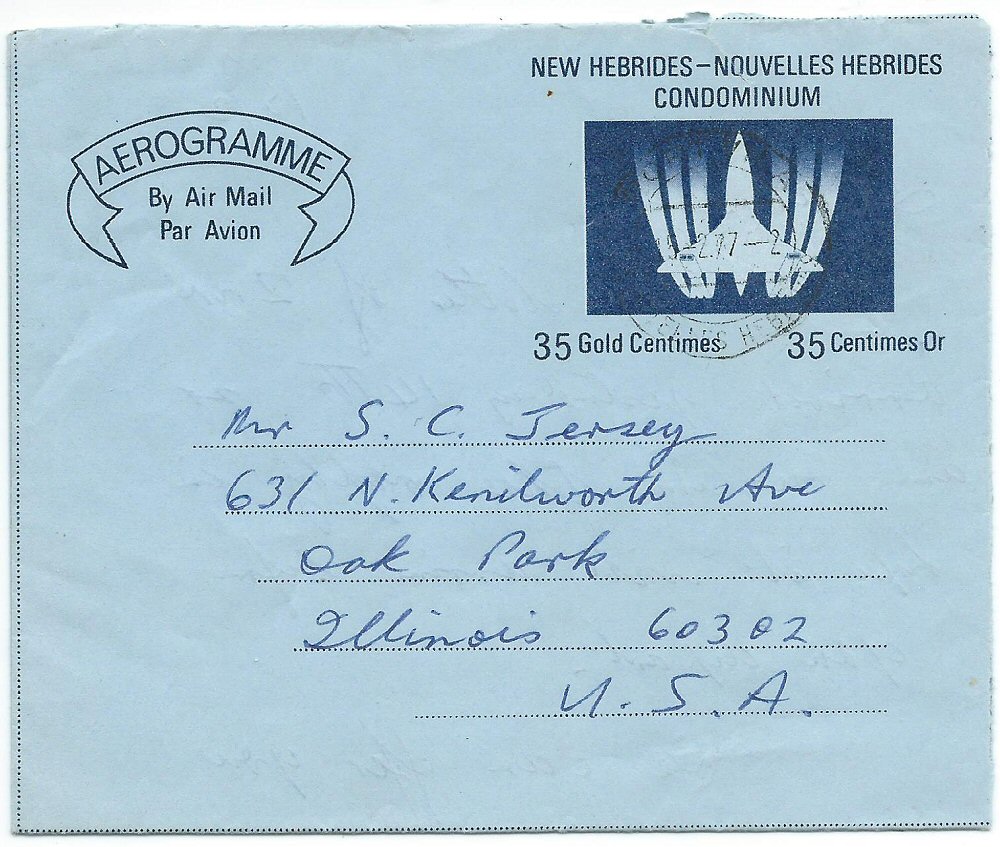 NEW HEBRIDES – NOUVELLES HEBRIDES
CONDOMINIUM
AEROGRAMME
By Air Mail
Par Avion
35 Gold Centimes 35 Centimes Or
Mr S. C. Jersey
631 N. Kenilworth Ave
Oak Park
Illinois 60302
U.S.A.